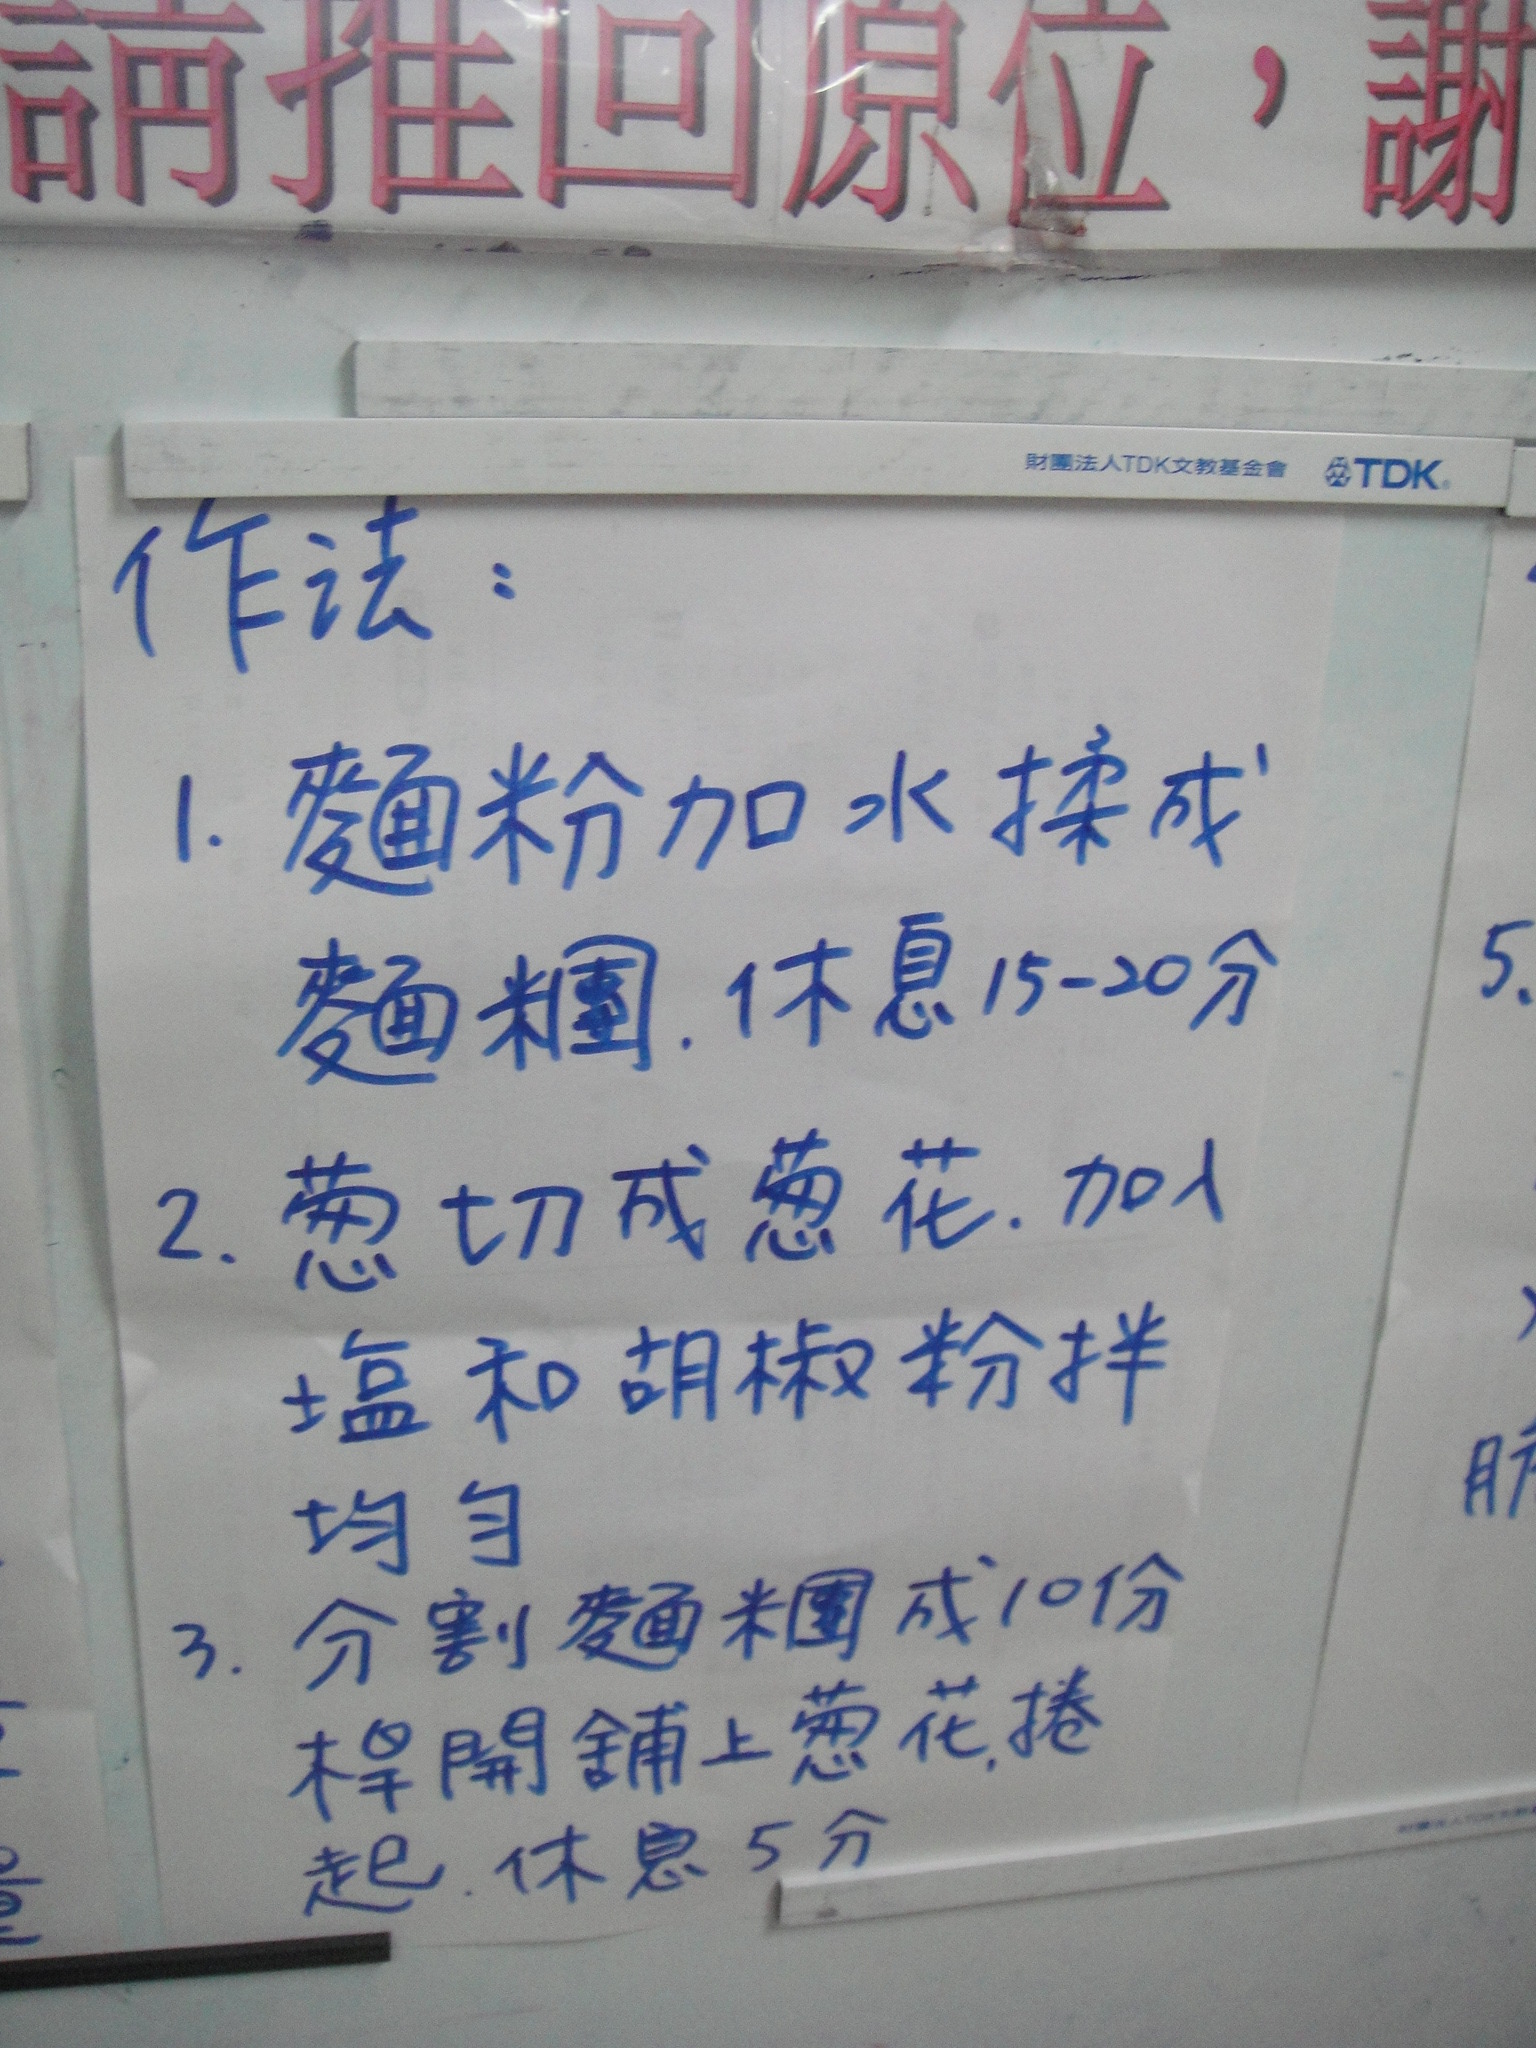 請推回原位，謝
財團法人TDK文教基金會 TDK
作法：
1. 麵粉加水揉成
麵糰. 休息15-20分
2. 蔥切成蔥花. 加入
塩和胡椒粉拌
均勻
3. 分割麵糰成10份
桿開舖上蔥花, 捲
起. 休息5分
5.
量